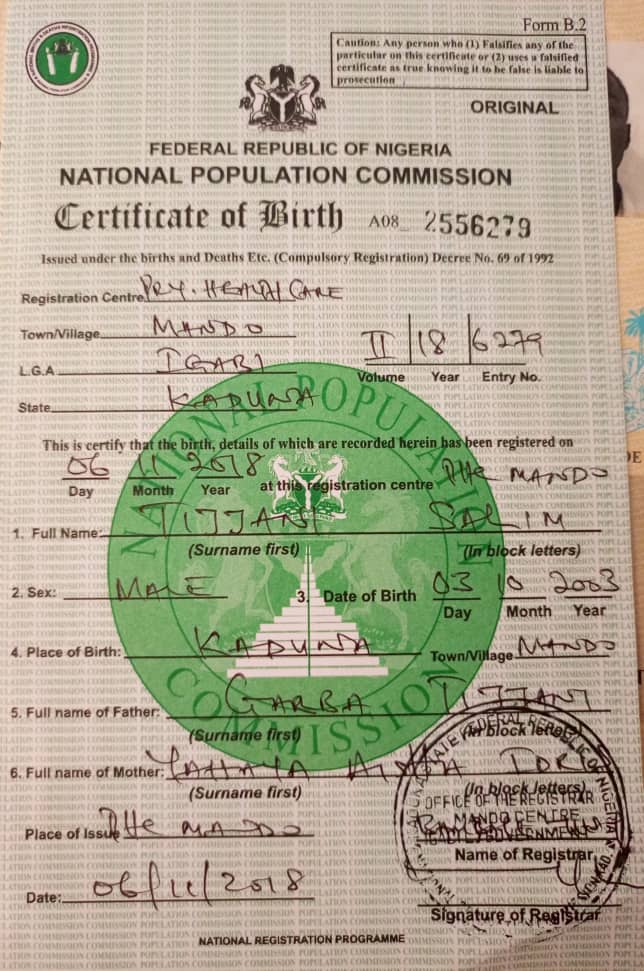 Form B.2
Caution: Any person who (1) Falsifies any of the
particular on this certificate or (2) uses a falsified
certificate as true knowing it to be false is liable to
prosecution
ORIGINAL
FEDERAL REPUBLIC OF NIGERIA
NATIONAL POPULATION COMMISSION
Certificate of Birth A08 2556279
Issued under the births and Deaths Etc. (Compulsory Registration) Decree No. 69 of 1992
Registration Centre PRY. HEALTH CARE
Town/Village MANDO
II 18 6279
L.G.A IGABI
Volume Year Entry No.
State KADUNA
NATIONAL POPULATION COMMISSION
This is certify that the birth, details of which are recorded herein has been registered on
06 11 2018 at this registration centre PHC MANDO
Day Month Year
1. Full Name: TIJJANI SALIM
(Surname first) (In block letters)
2. Sex: MALE 3. Date of Birth 03 10 2003
Day Month Year
4. Place of Birth: KADUNA Town/Village MANDO
5. Full name of Father: GARBA TIJJANI
(Surname first) (In block letters)
6. Full name of Mother: YAHAYA IDRIS
(Surname first) (In block letters)
OFFICE OF THE REGISTRAR
MANDO CENTRE
Place of Issue PHC MANDO
Name of Registrar
Date: 06/11/2018
Signature of Registrar
NATIONAL REGISTRATION PROGRAMME